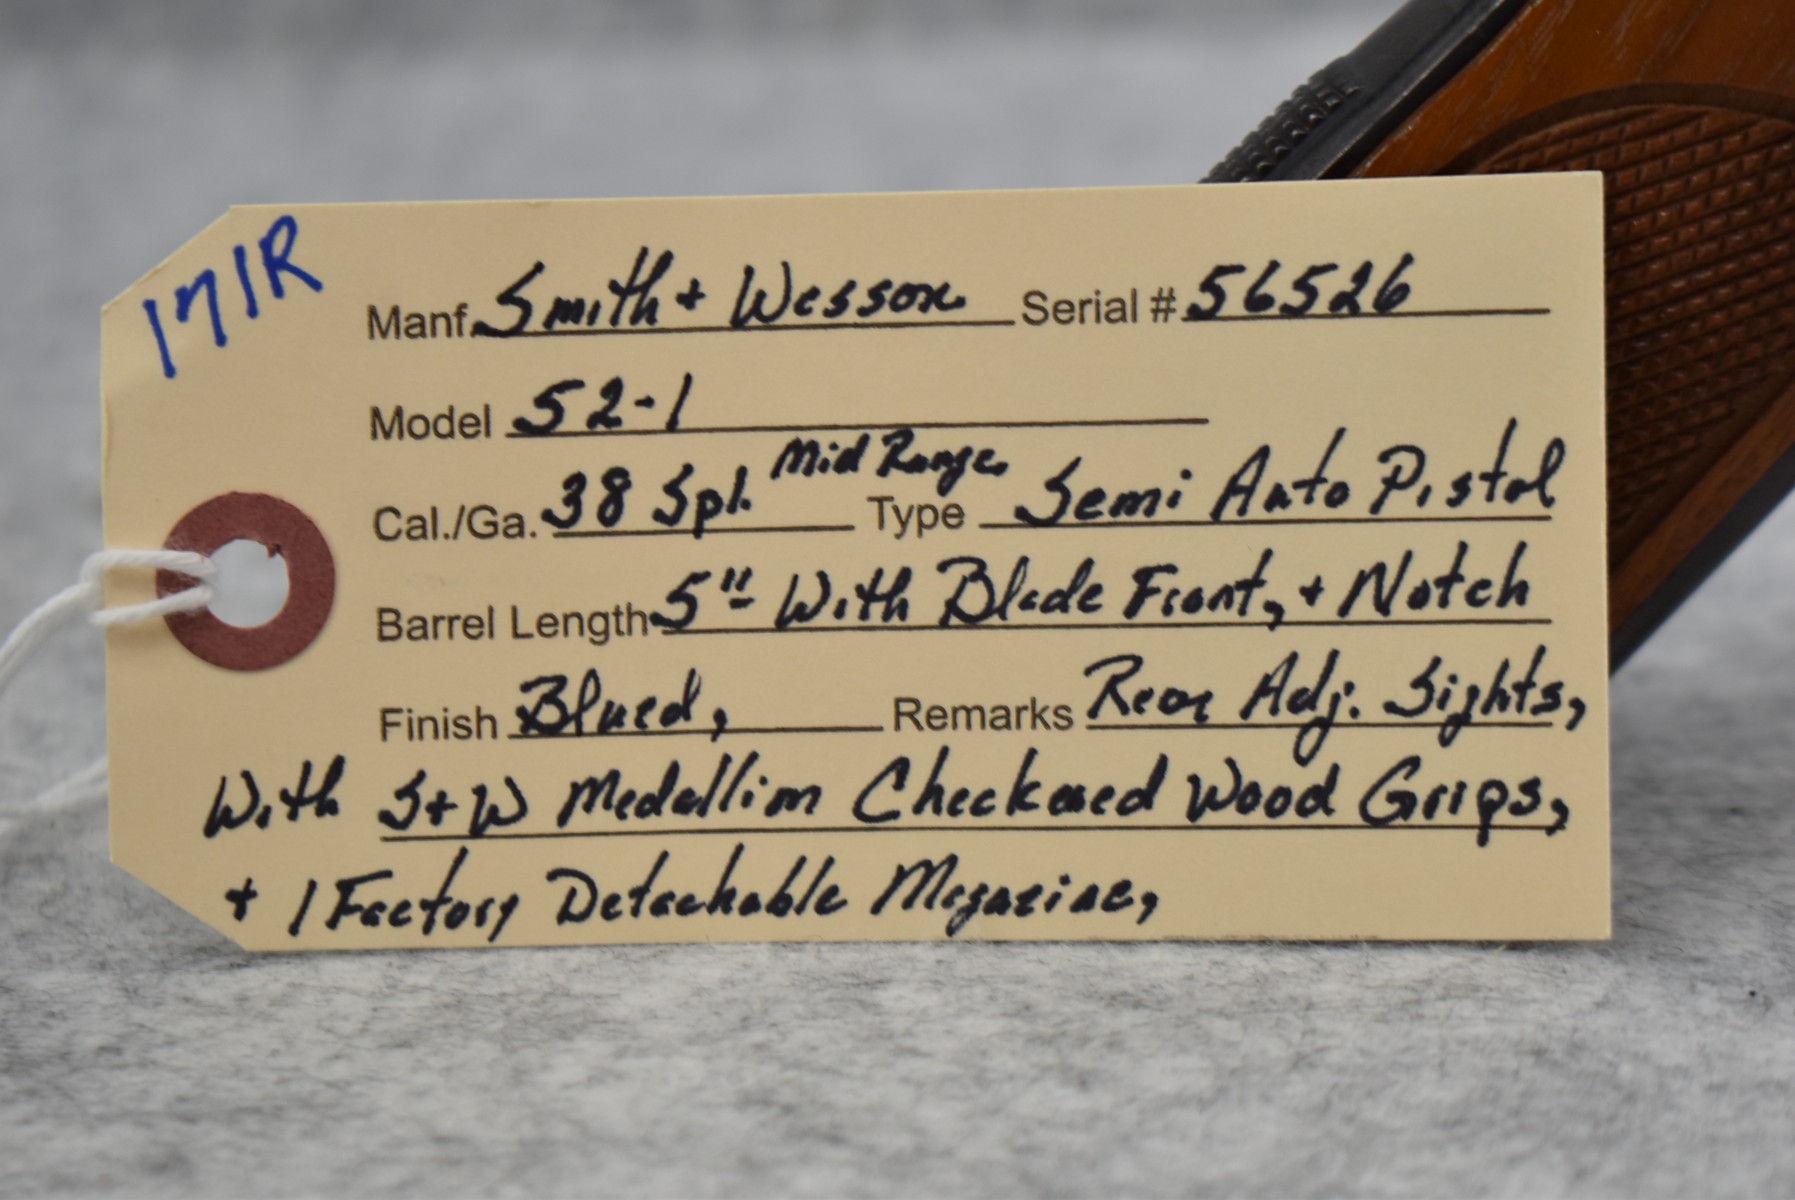 171R
Manf. Smith + Wesson Serial # 56526
Model 52-1
Cal./Ga. 38 Spl. Mid Range Type Semi Auto Pistol
Barrel Length 5" With Blade Front, + Notch
Finish Blued, Remarks Rear Adj. Sights,
With S+W Medallion Checkered Wood Grips,
+ 1 Factory Detachable Magazine,